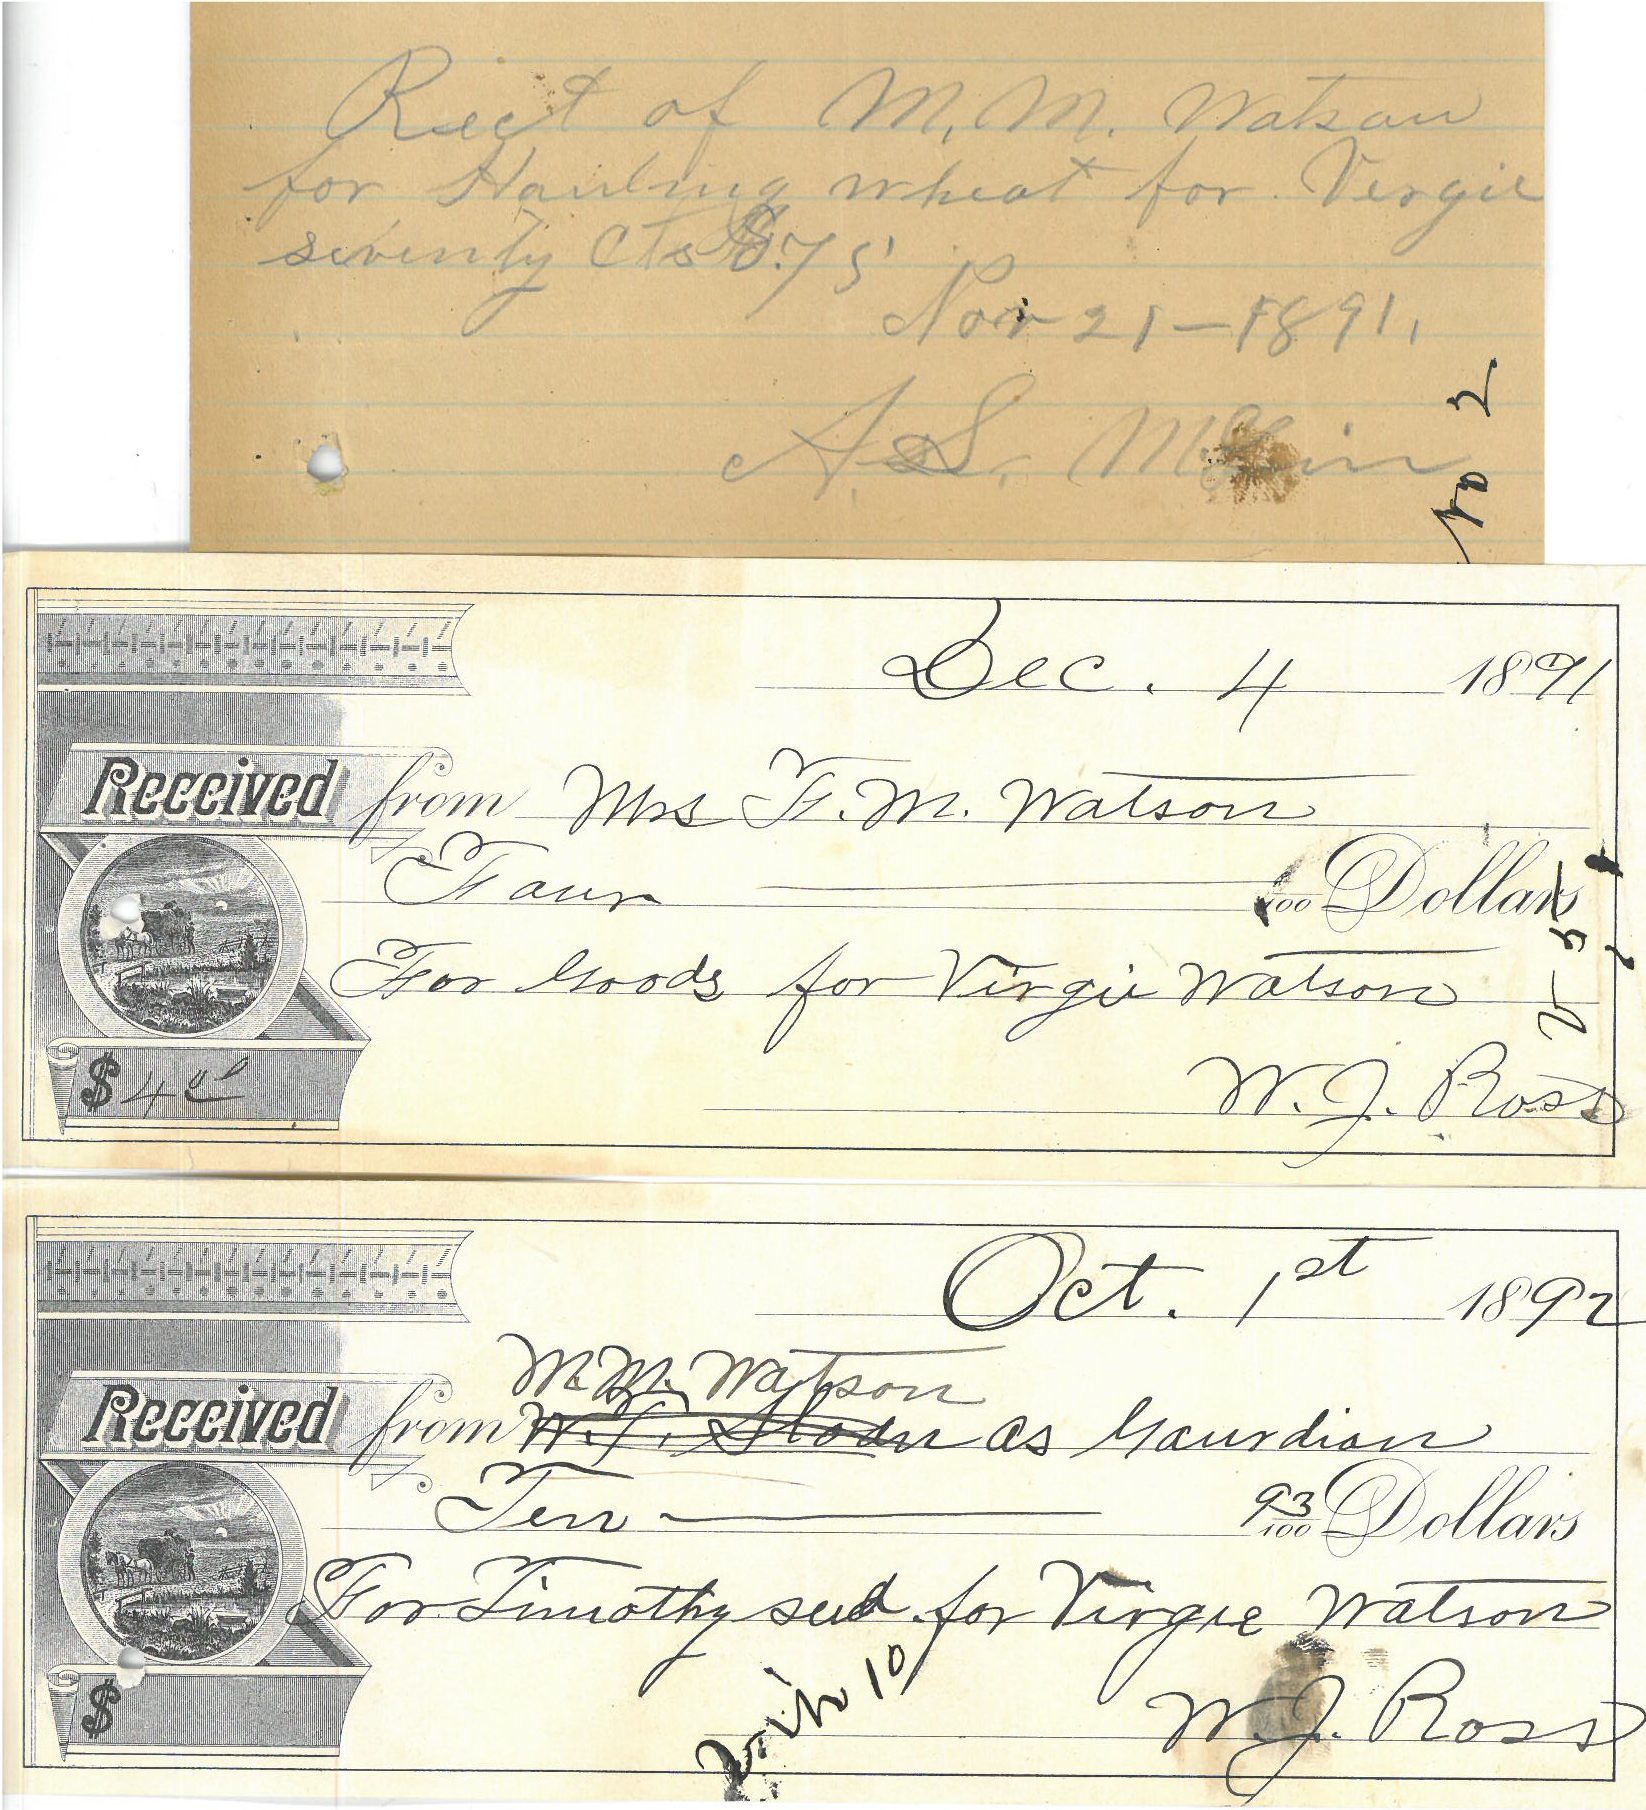 Rect of M. M. Watson
for Hauling wheat for Virgie
seventy Cts $.75
Nov 21 - 1891.
A. S.
No 2
Dec. 4 1891
Received from Mrs F. M. Watson
Four /100 Dollars
For Goods for Virgie Watson
$ 4 00
W. J. Ross
Oct. 1st 1892
M. M. Watson
Received from W. T. Sloan as Gaurdian
Ten 93/100 Dollars
For Timothy seed for Virgie Watson
$
10
W. J. Ross